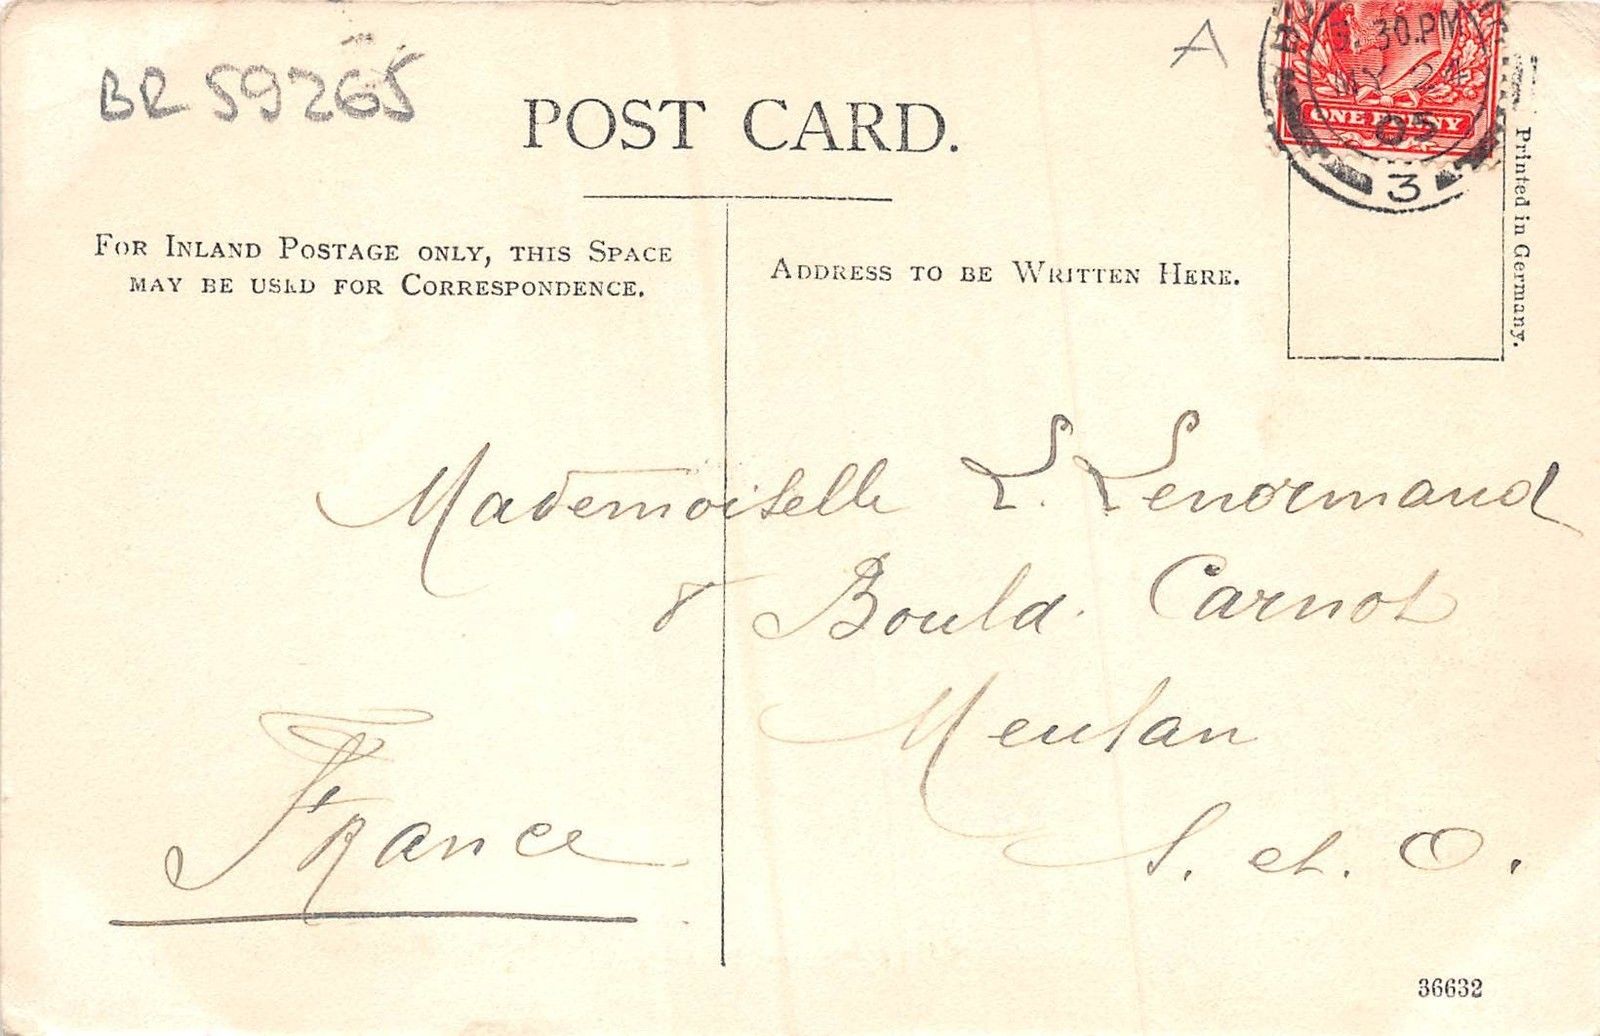 BR 59265
A
POST CARD.
30.PM
MY 24
05
ONE PENNY
3
Printed in Germany.
FOR INLAND POSTAGE ONLY, THIS SPACE
MAY BE USED FOR CORRESPONDENCE.
ADDRESS TO BE WRITTEN HERE.
Mademoiselle L. Lenormand
8 Bould. Carnot
Meulan
S. et. O.
France
36632